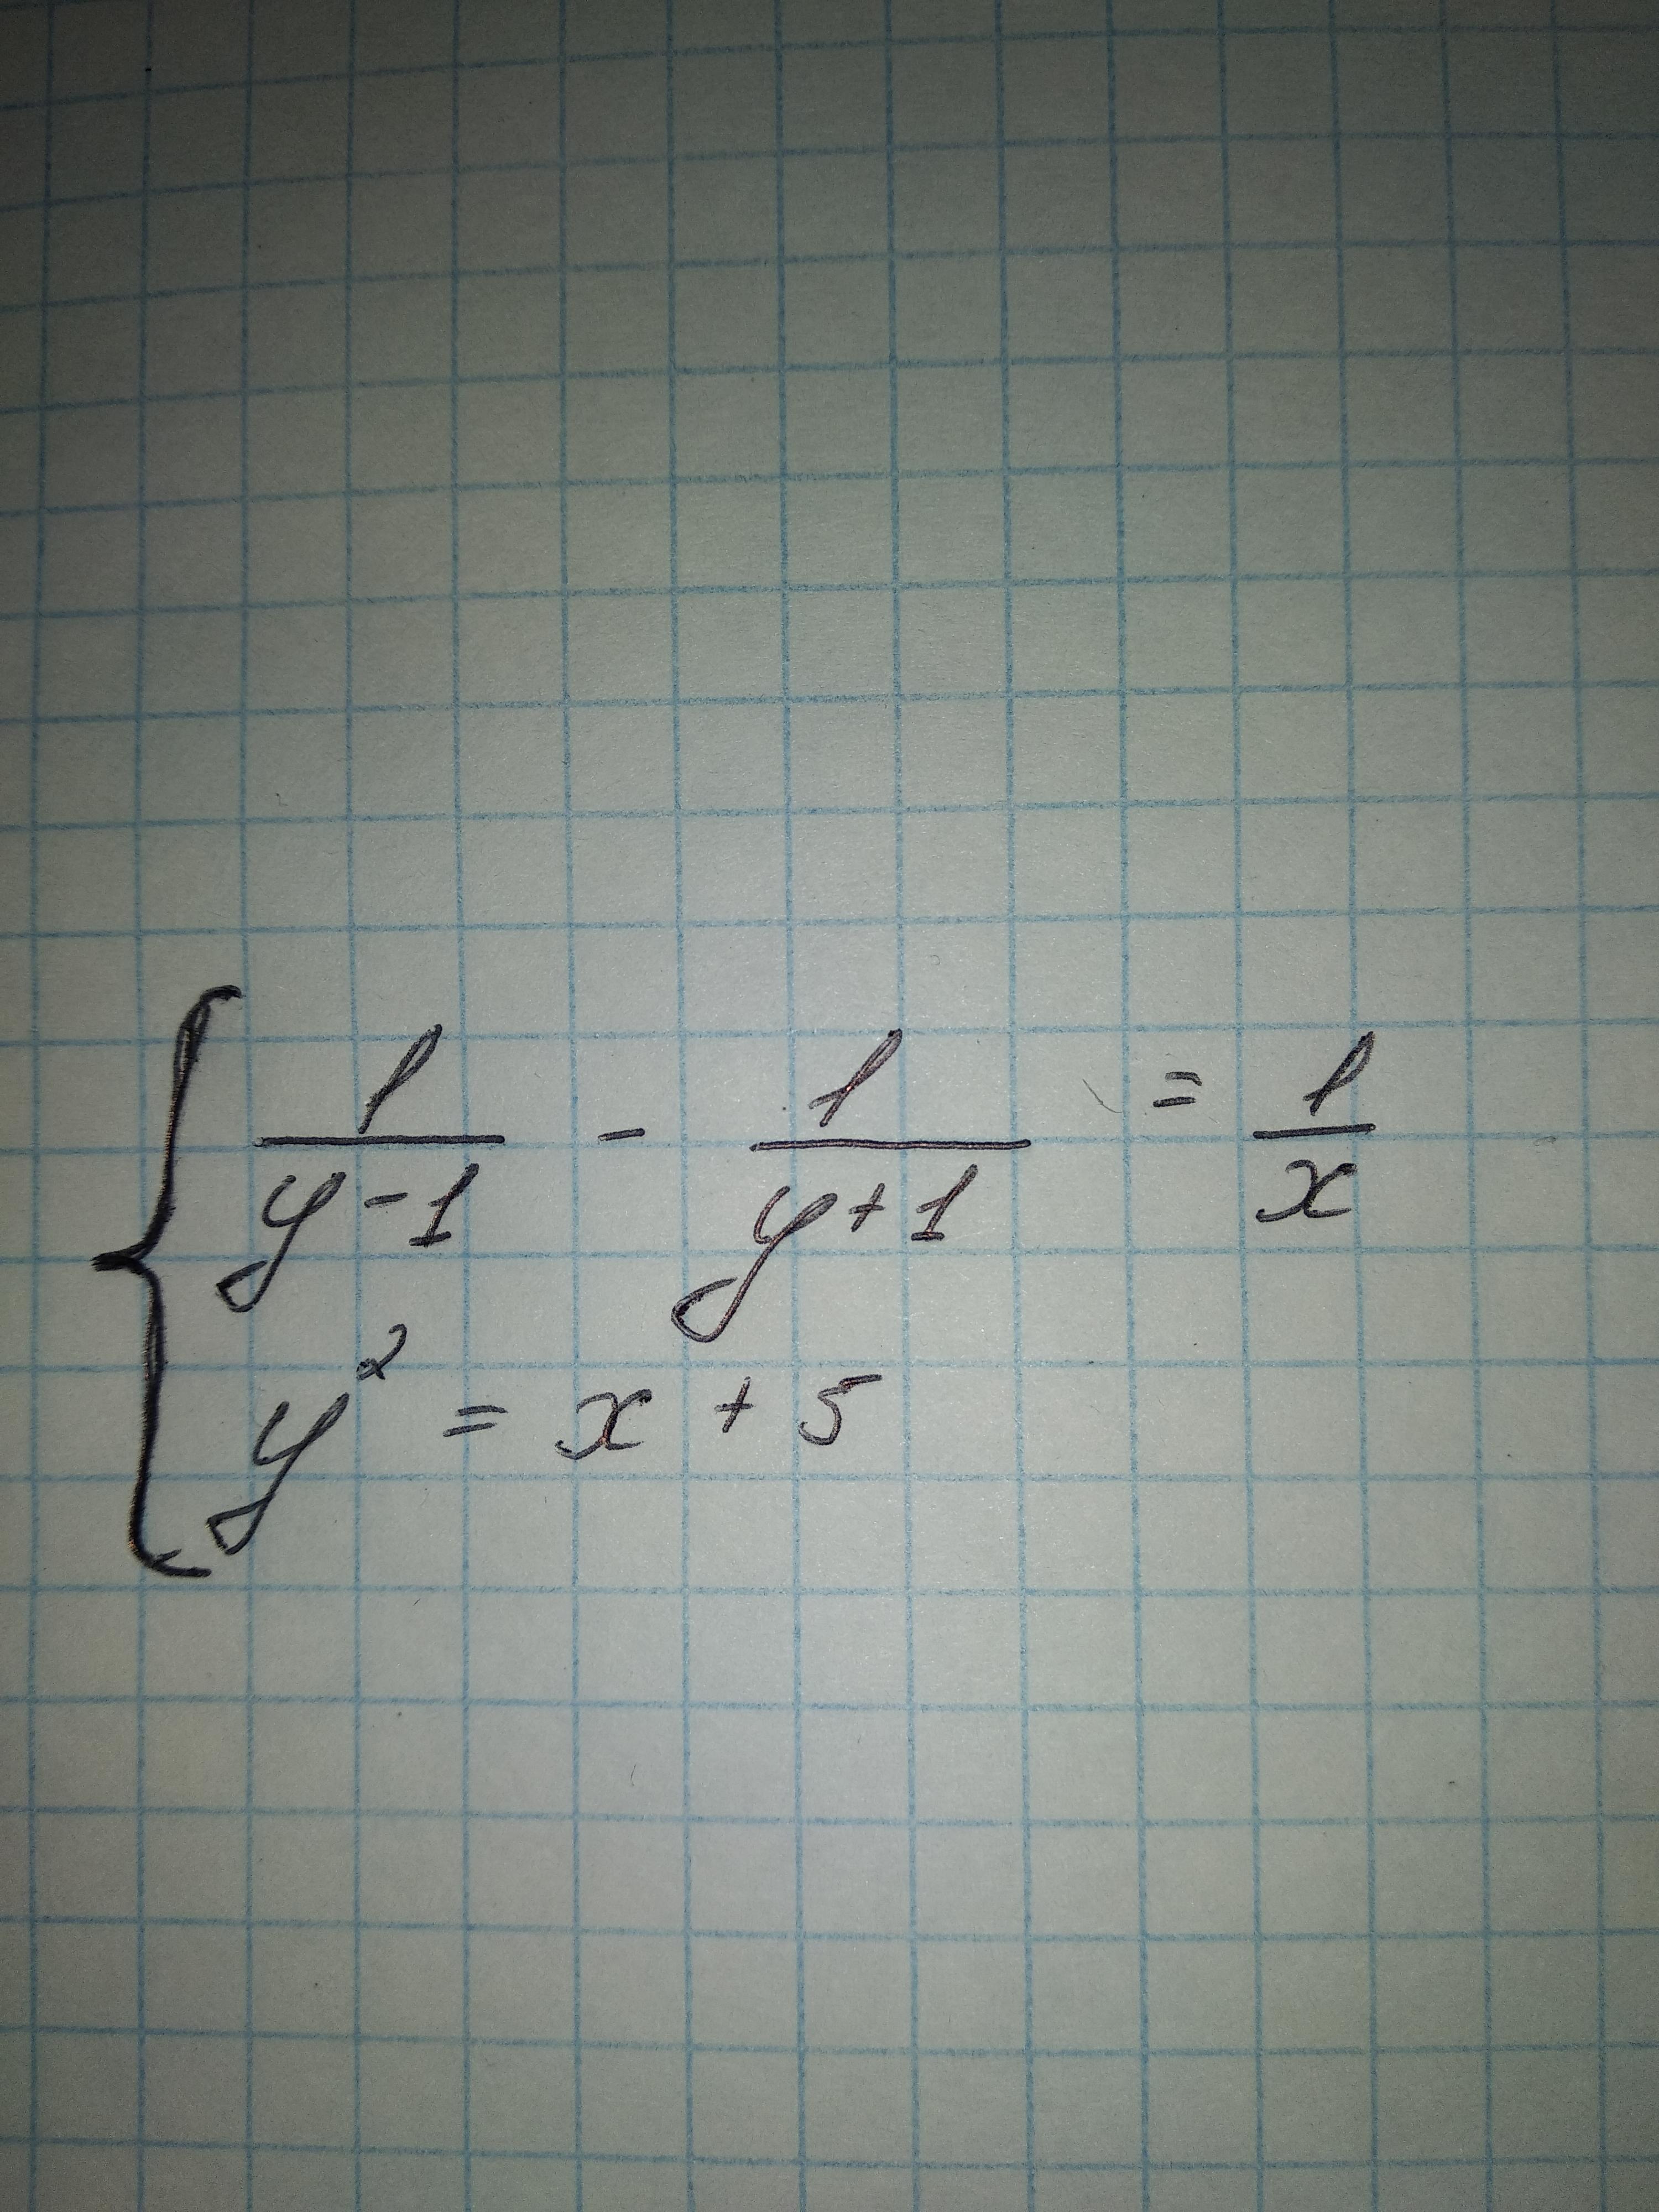 1/(y-1) - 1/(y+1) = 1/x
y² = x + 5